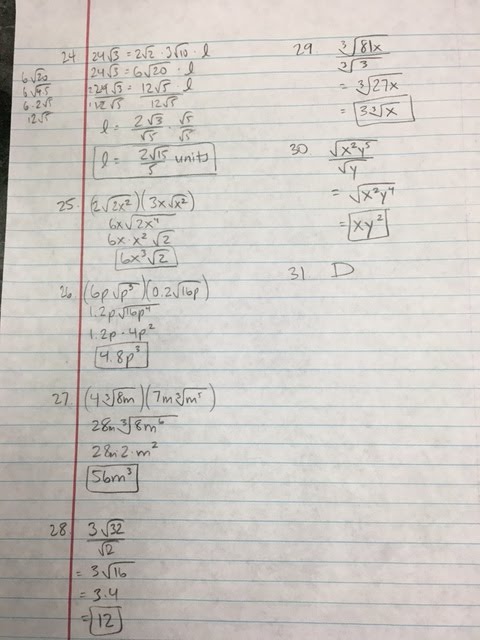 24 24√3 = 2√2 · 3√10 · l
24√3 = 6√20 · l
24√3 = 12√5 l
12√5 12√5
l = 2√3/√5 · √5/√5
l = 2√15/5 units
6√20
6√4·5
6·2√5
12√5
25. (2√2x²)(3x√x²)
6x√2x⁴
6x·x²√2
6x³√2
26. (6p√p³)(0.2√16p)
1.2p√16p⁴
1.2p·4p²
4.8p³
27. (4∛8m)(7m∛m⁵)
28m∛8m⁶
28m·2·m²
56m³
28. 3√32
√2
= 3√16
= 3·4
= 12
29 ∛81x
∛3
= ∛27x
= 3∛x
30 √x²y⁵
√y
= √x²y⁴
= xy²
31 D